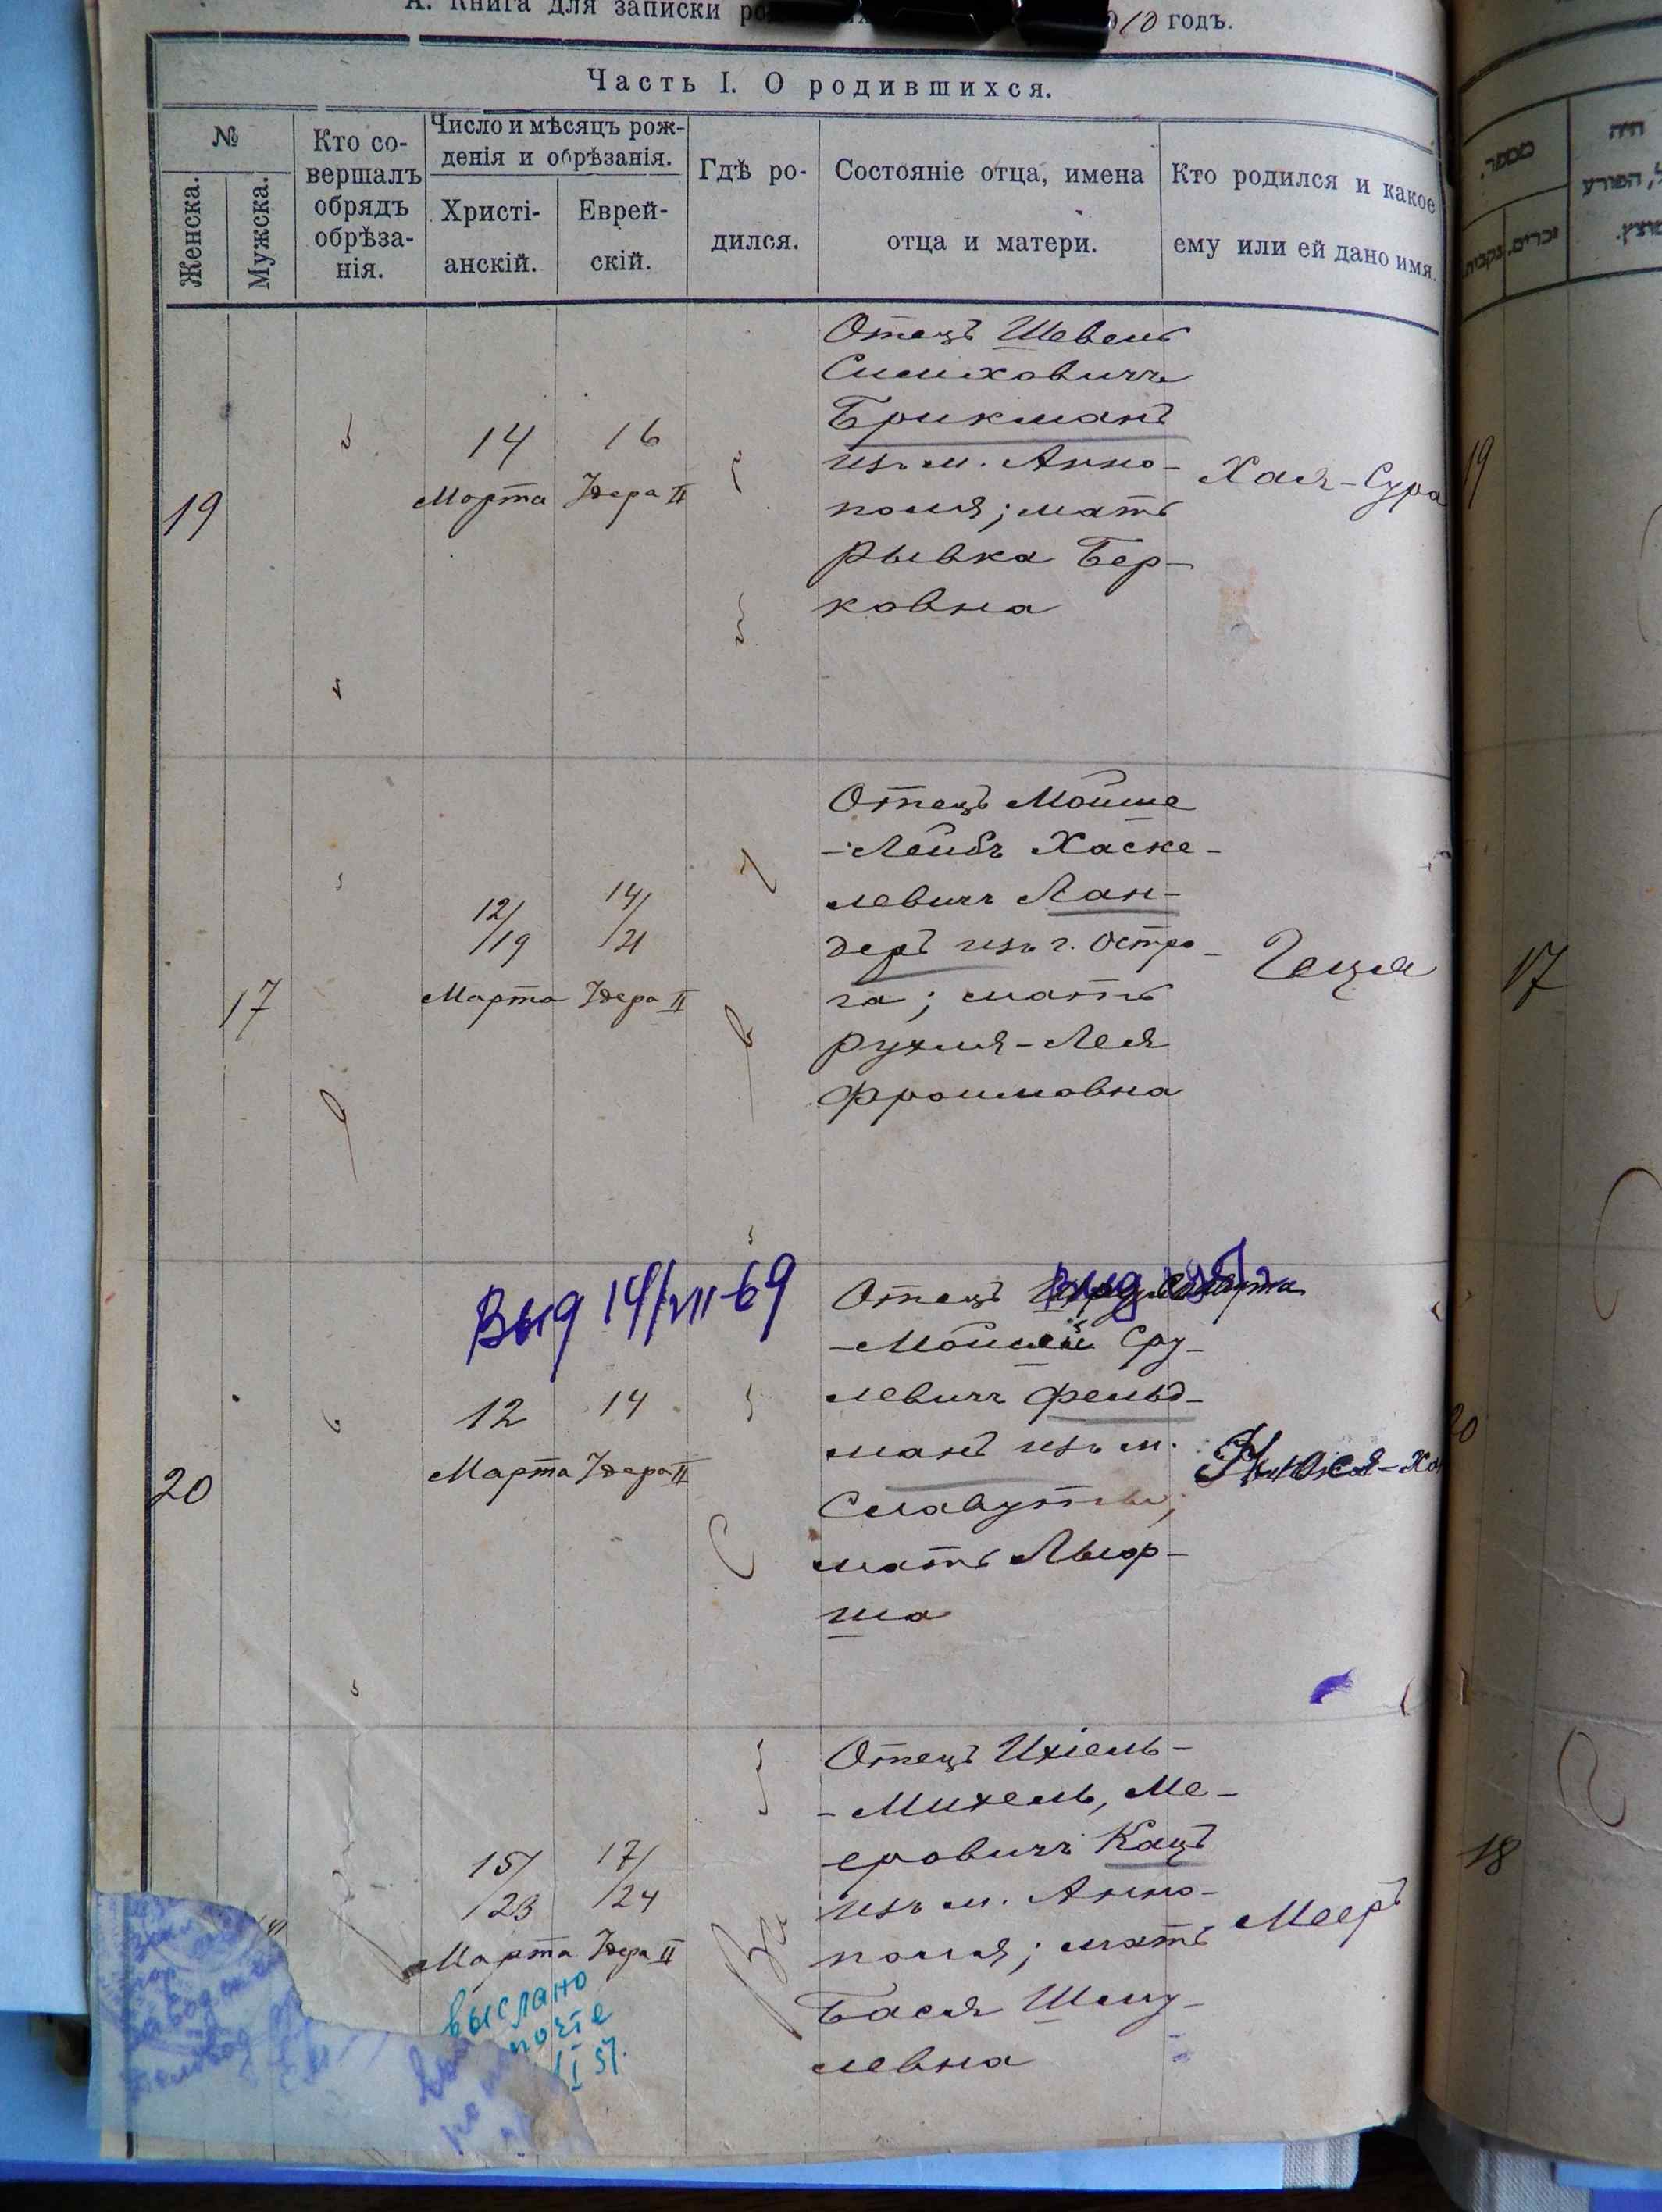 А. Книга для записки
10 годъ.
Часть I. О родившихся.
№
Женска.
Мужска.
Кто со-
вершалъ
обрядъ
обрѣза-
нія.
Число и мѣсяцъ рож-
денія и обрѣзанія.
Христі-
анскій.
Еврей-
скій.
Гдѣ ро-
дился.
Состояніе отца, имена
отца и матери.
Кто родился и какое
ему или ей дано имя.
מספר.
זכרים.
נקבות
19
14
Марта
16
Адера II
Отецъ Шевель
Симховичъ
Брикманъ
изъ м. Анно-
поля; мать
Рывка Бер-
ковна
Хая-Сура
19
17
12/19
Марта
14/21
Адера II
Отецъ Мойше
-Лейбъ Хаске-
левичъ Лан-
деръ изъ г. Остро-
га; мать
Рухля-Лея
Фроимовна
Геця
17
Выд 14/VII-69
20
12
Марта
14
Адера II
Отецъ
-Мойшей Сру-
левичъ Фельд-
манъ изъ м.
Славуты;
мать
ша
20
15/23
Марта
17/24
Адера II
Отецъ Ихіель-
-Михель, Ме-
еровичъ Кацъ
изъ м. Анно-
поля; мать
Бася Шму-
левна
Мееръ
18
выслано
почте
I 57.